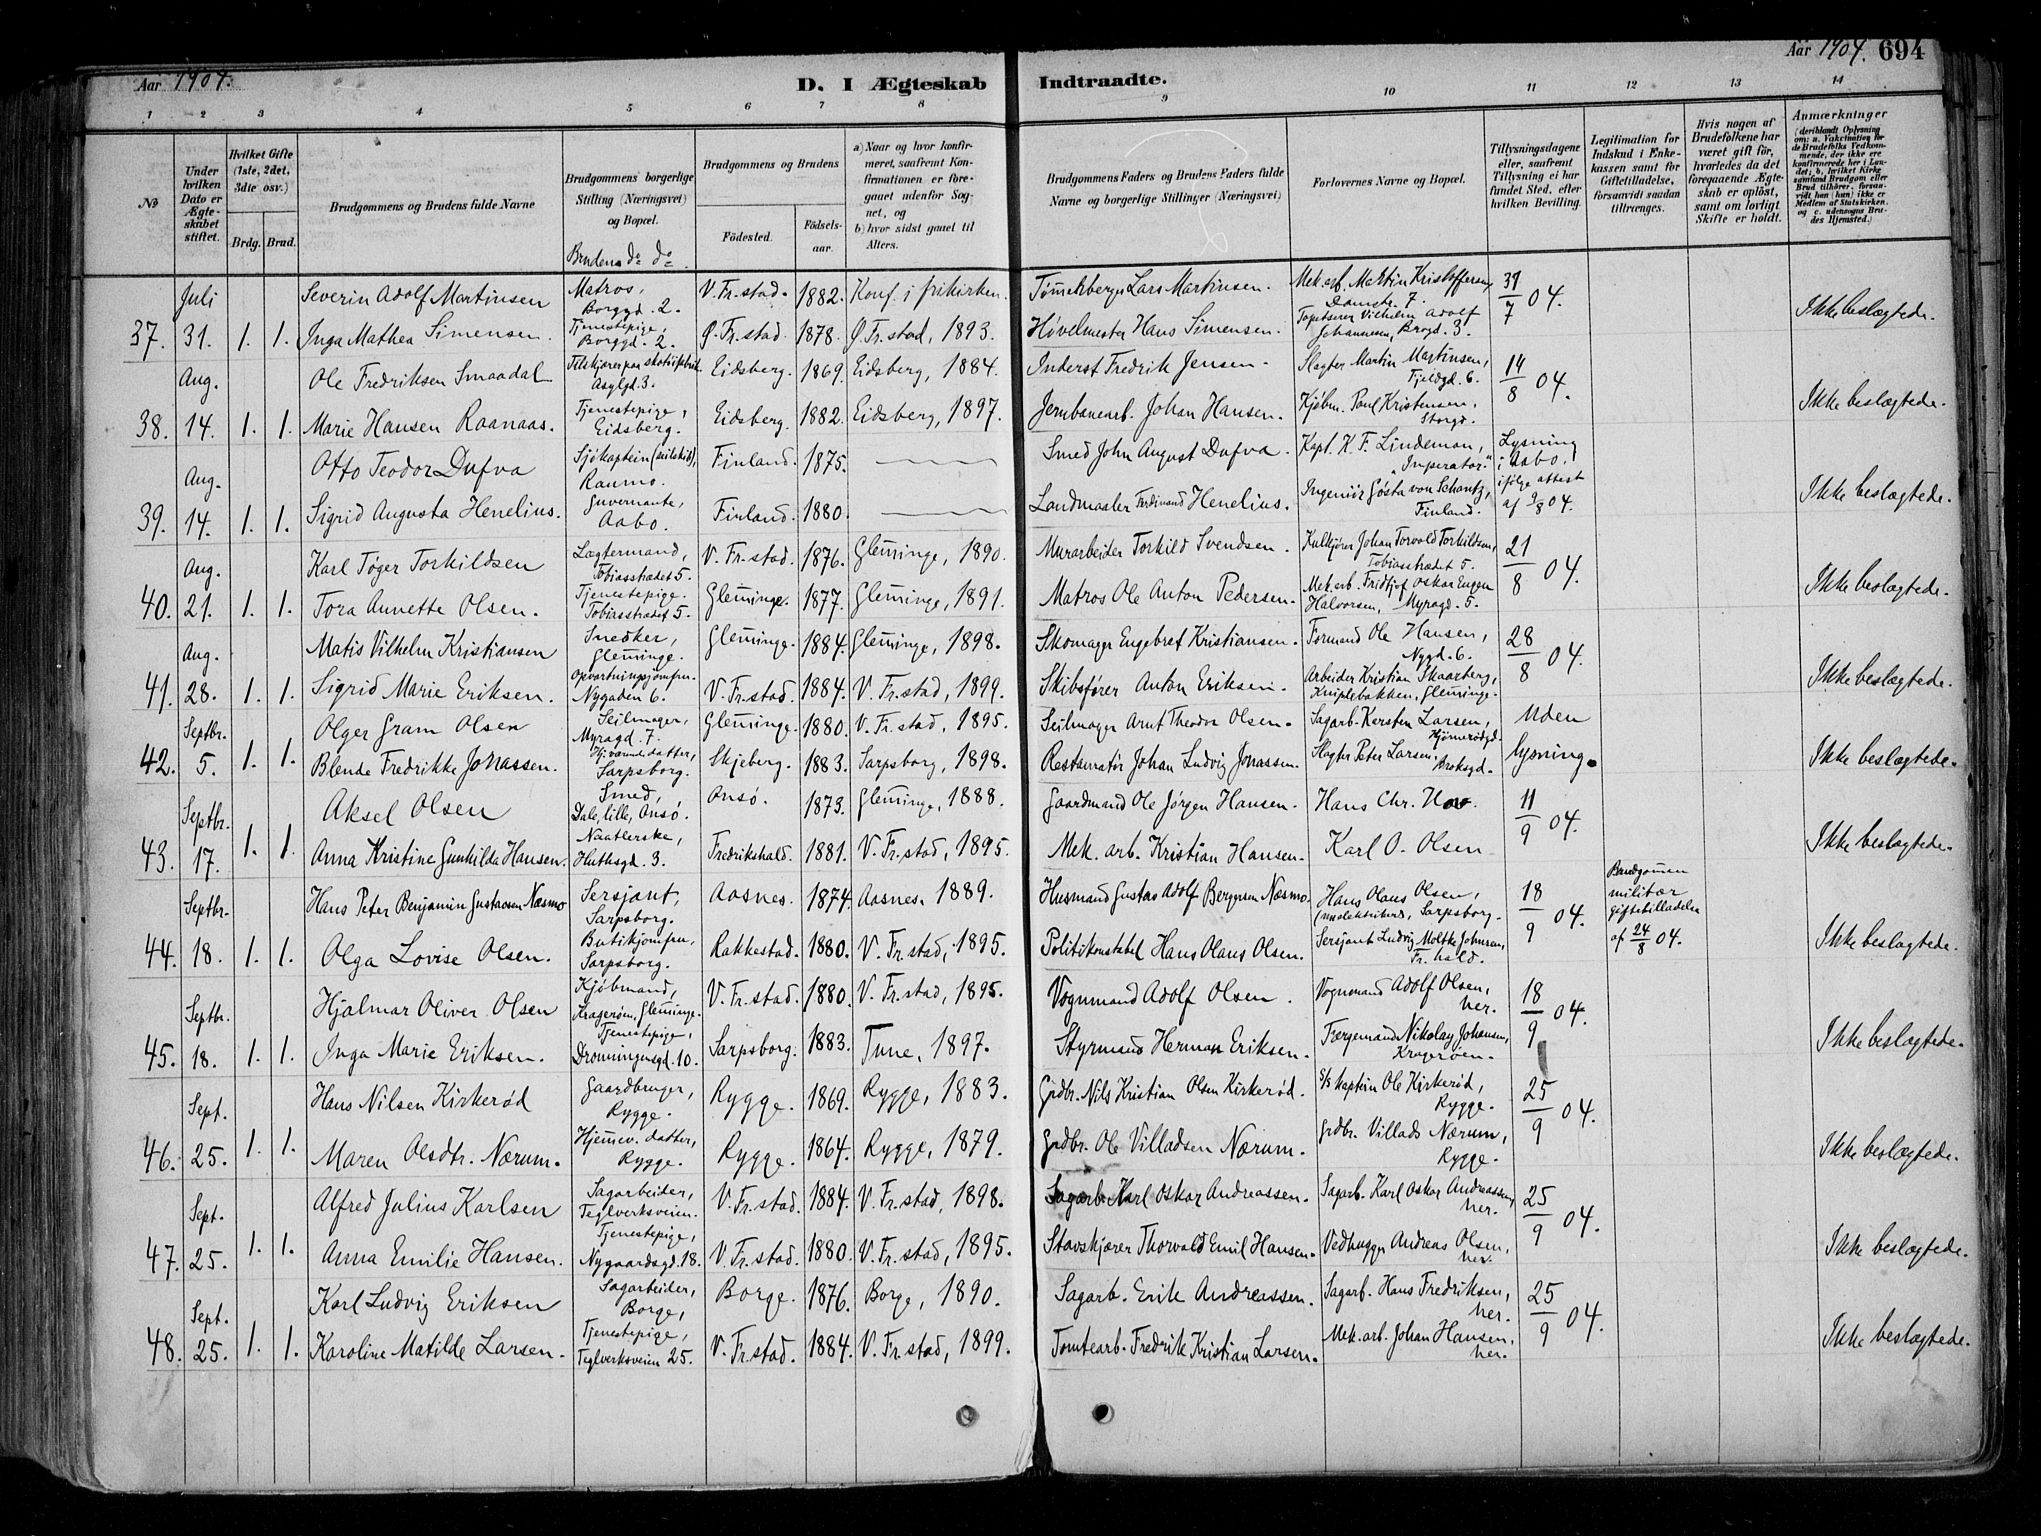 Aar 1904.
D. I Ægteskab Indtraadte.
Aar 1904. 694
1 2 3 4 5 6 7 8 9 10 11 12 13 14
No
Under hvilken Dato er Ægteskabet stiftet.
Hvilket Gifte (1ste, 2det, 3die osv.)
Brdg. Brud.
Brudgommens og Brudens fulde Navne
Brudgommens borgerlige Stilling (Næringsvei) og Bopæl.
Brudens do do.
Brudgommens og Brudens
Fødested. Fødselsaar.
a) Naar og hvor konfirmeret, saafremt Konfirmationen er foregaaet udenfor Sognet, og
b) hvor sidst gaaet til Alters.
Brudgommens Faders og Brudens Faders fulde Navne og borgerlige Stillinger (Næringsvei)
Forlovernes Navne og Bopæl.
Tillysningsdagene eller, saafremt Tillysning ei har fundet Sted, efter hvilken Bevilling.
Legitimation for Indskud i Enkekassen samt for Giftetilladelse, forsaavidt saadan tiltrænges.
Hvis nogen af Brudefolkene har været gift før, hvorledes da det foregaaende Ægteskab er opløst, samt om lovligt Skifte er holdt.
Anmærkninger
(deriblandt Oplysning om: a. Vaccination for de Brudefolks Vedkommende, der ikke ere konfirmerede her i Landet; b. hvilket Kirkesamfund Brudgom eller Brud tilhører, forsaavidt han (hun) ikke er Medlem af Statskirken, og c. udensogns Brudes Hjemsted.)
Juli Severin Adolf Martinsen Matros, Borggd. 2. V. Fr.stad. 1882. Konf. i frikirken. Lars Martinsen. Mek. arb. Martin Kristoffersen, Damste. 7. 31/7 04.
37. 31. 1. 1. Inga Mathea Simensen. Tjenestepige, Borggd. 2. Ø. Fr.stad. 1878. Ø. Fr.stad, 1893. Høvelmester Hans Simensen. Vilhelm Adolf Johannesen, Brogd. 3. Ikke beslægtede.
Aug. Ole Fredriksen Smaadal Asylgd. 3. Eidsberg. 1869. Eidsberg, 1884. Inderst Fredrik Jensen. Slagter Martin Martinsen, Fjeldgd. 6. 14/8 04.
38. 14. 1. 1. Marie Hansen Raanaas. Tjenestepige, Eidsberg. Eidsberg. 1882. Eidsberg, 1897. Jernbanearb. Johan Hansen. Kjøbm. Paul Kristensen, Storgd. Ikke beslægtede.
Aug. Otto Teodor Dufva Sjøkaptein (seilskib), Raumo. Finland. 1875. Smed John August Dufva. Kapt. K. F. Lindeman, "Imperator." Lysning i Aabo.
39. 14. 1. 1. Sigrid Augusta Henelius. Guvernante, Aabo. Finland. 1880. Landmaaler Ferdinand Henelius. Ingeniør Gösta von Schantz, Finland. ifølge attest af 9/8 04. Ikke beslægtede.
Aug. Karl Tøger Torkildsen Lagtermand, Tobiasstrædet 5. V. Fr.stad. 1876. Glem̄inge, 1890. Murarbeider Torkild Svendsen. Kulkjører Johan Torvald Torkildsen, Tobiasstrædet 5. 21/8 04.
40. 21. 1. 1. Tora Annette Olsen. Tjenestepige. Tobiasstrædet 5. Glem̄inge. 1877. Glem̄inge, 1891. Matros Ole Anton Pedersen. Mek. arb. Fridtjof Oskar Eugen Halvorsen, Myragd. 5. Ikke beslægtede.
Aug. Matis Vilhelm Kristiansen Snedker, Glem̄inge. Glem̄inge. 1884. Glem̄inge, 1898. Skomager Engebret Kristiansen. Formand Ole Hansen, Nygd. 6. 28/8 04.
41. 28. 1. 1. Sigrid Marie Eriksen. Opvartningsjomfru. Nygaden 6. V. Fr.stad. 1884. V. Fr.stad, 1899. Skibsfører Anton Eriksen. Arbeider Kristian Skaarberg, Kniplebakken, Glem̄inge. Ikke beslægtede.
Septbr. Olger Gram Olsen Seilmager, Myragd. 7. Glem̄inge. 1880. V. Fr.stad, 1895. Seilmager Arnt Theodor Olsen. Sagarb. Kersten Larsen, Uden
42. 5. 1. 1. Blende Fredrikke Jonassen. Hjemmev. datter, Sarpsborg. Skjeberg. 1883. Sarpsborg, 1898. Restauratør Johan Ludvig Jonassen. Slagter Peter Larsen, lysning. Ikke beslægtede.
Septbr. Aksel Olsen Smed, Dale, lille, Onsø. Onsø. 1873. Glem̄inge, 1888. Gaardmand Ole Jørgen Hansen. Hans Chr. 11/9 04.
43. 17. 1. 1. Anna Kristine Gunhilda Hansen. Naatlerske, 3. Fredrikshald. 1881. V. Fr.stad, 1895. Mek. arb. Kristian Hansen. Karl O. Olsen Ikke beslægtede.
Septbr. Hans Peter Benjamin Gustavsen Næsmo Sersjant, Sarpsborg. Aasnes. 1874. Aasnes. 1889. Husmand Gustav Adolf Berggren Næsmo. Hans Olaus Olsen, Sarpsborg. 18/9 04. Brudgom̄en militær giftetilladelse
44. 18. 1. 1. Olga Lovise Olsen. Butikjomfru, Sarpsborg. Rakkestad. 1880. V. Fr.stad, 1895. Politikonstabel Hans Olaus Olsen. Sersjant Ludvig Moltke Johnsen, Fr. hald. af 24/8 04. Ikke beslægtede.
Septbr. Hjalmar Oliver Olsen Kjøbmand, Kragerøen, Glem̄inge. V. Fr.stad. 1880. V. Fr.stad, 1895. Vognmand Adolf Olsen. Vognmand Adolf Olsen, her. 18/9 04.
45. 18. 1. 1. Inga Marie Eriksen. Tjenestepige, Dronningensgd. 10. Sarpsborg. 1883. Tune, 1897. Styrmand Herman Eriksen. Færgemand Nikolay Johansen, Kragerøen. Ikke beslægtede.
Sept. Hans Nilsen Kirkerød Gaardbruger, Rygge. Rygge. 1869. Rygge, 1883. Grdbr. Nils Kristian Olsen Kirkerød. S/S kaptein Ole Kirkerød, Rygge. 25/9 04.
46. 25. 1. 1. Maren Olsdtr. Nærum. Hjemmev. datter, Rygge. Rygge. 1864. Rygge, 1879. Grdbr. Ole Villadsen Nærum. Grdbr. Villads Nærum, Rygge. Ikke beslægtede.
Sept. Alfred Julius Karlsen Sagarbeider, Teglverksveien. V. Fr.stad. 1884. V. Fr.stad, 1898. Sagarb. Karl Oskar Andreassen. Sagarb. Karl Oskar Andreassen, her. 25/9 04.
47. 25. 1. 1. Anna Emilie Hansen. Tjenestepige, Nygaardsgd. 18. V. Fr.stad. 1880. V. Fr.stad, 1895. Stavskjærer Thorvald Emil Hansen. Vedhugger Andreas Olsen, her. Ikke beslægtede.
Sept. Karl Ludvig Eriksen Sagarbeider, Borge, Borge. 1876. Borge, 1890. Sagarb. Erik Andreassen. Sagarb. Hans Fredriksen, her. 25/9 04.
48. 25. 1. 1. Karoline Matilde Larsen. Tjenestepige, Teglverksveien 25. V. Fr.stad. 1884. V. Fr.stad, 1899. Tomtearb. Fredrik Kristian Larsen. Mek. arb. Johan Hansen, her. Ikke beslægtede.